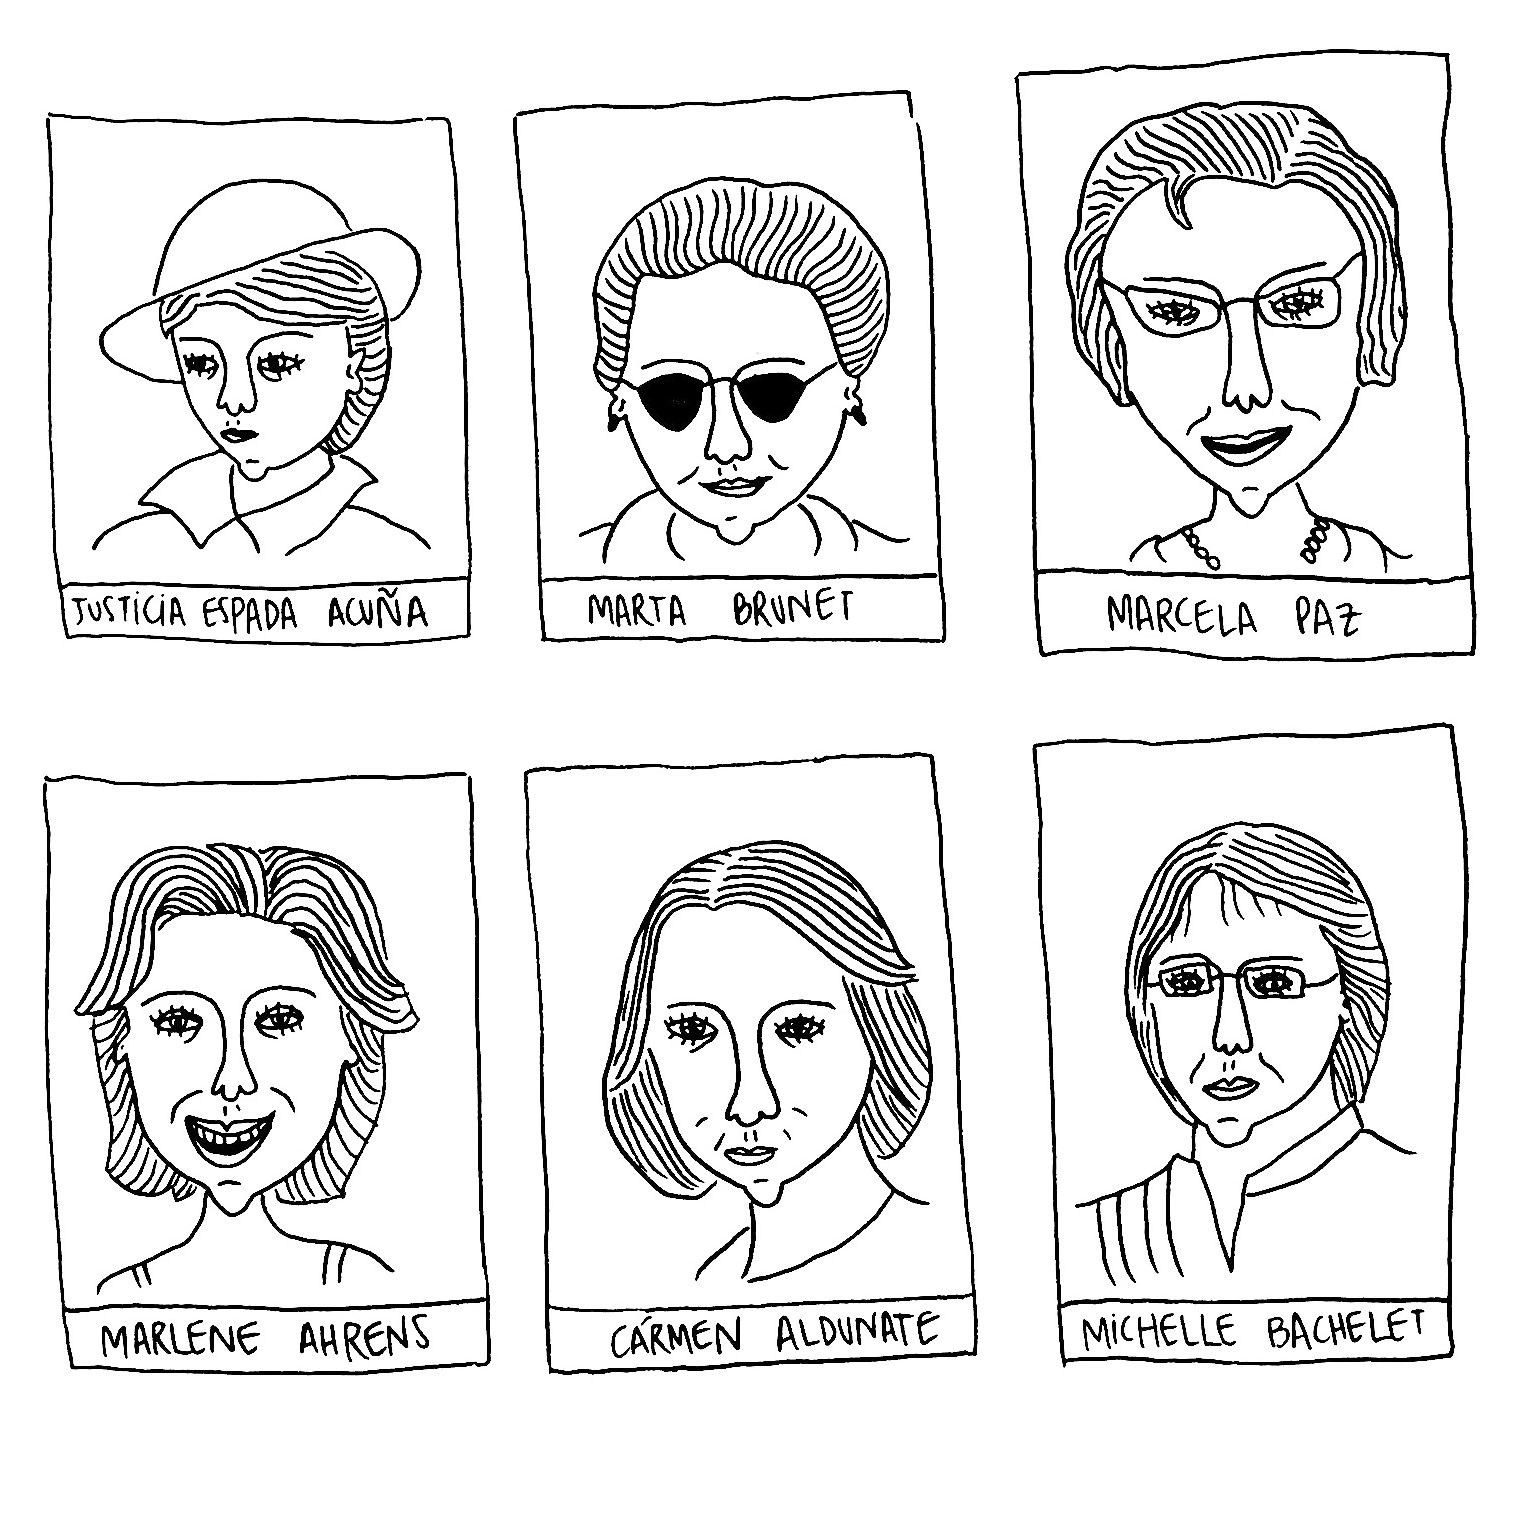 JUSTICIA ESPADA ACUÑA
MARTA BRUNET
MARCELA PAZ
MARLENE AHRENS
CÁRMEN ALDUNATE
MICHELLE BACHELET